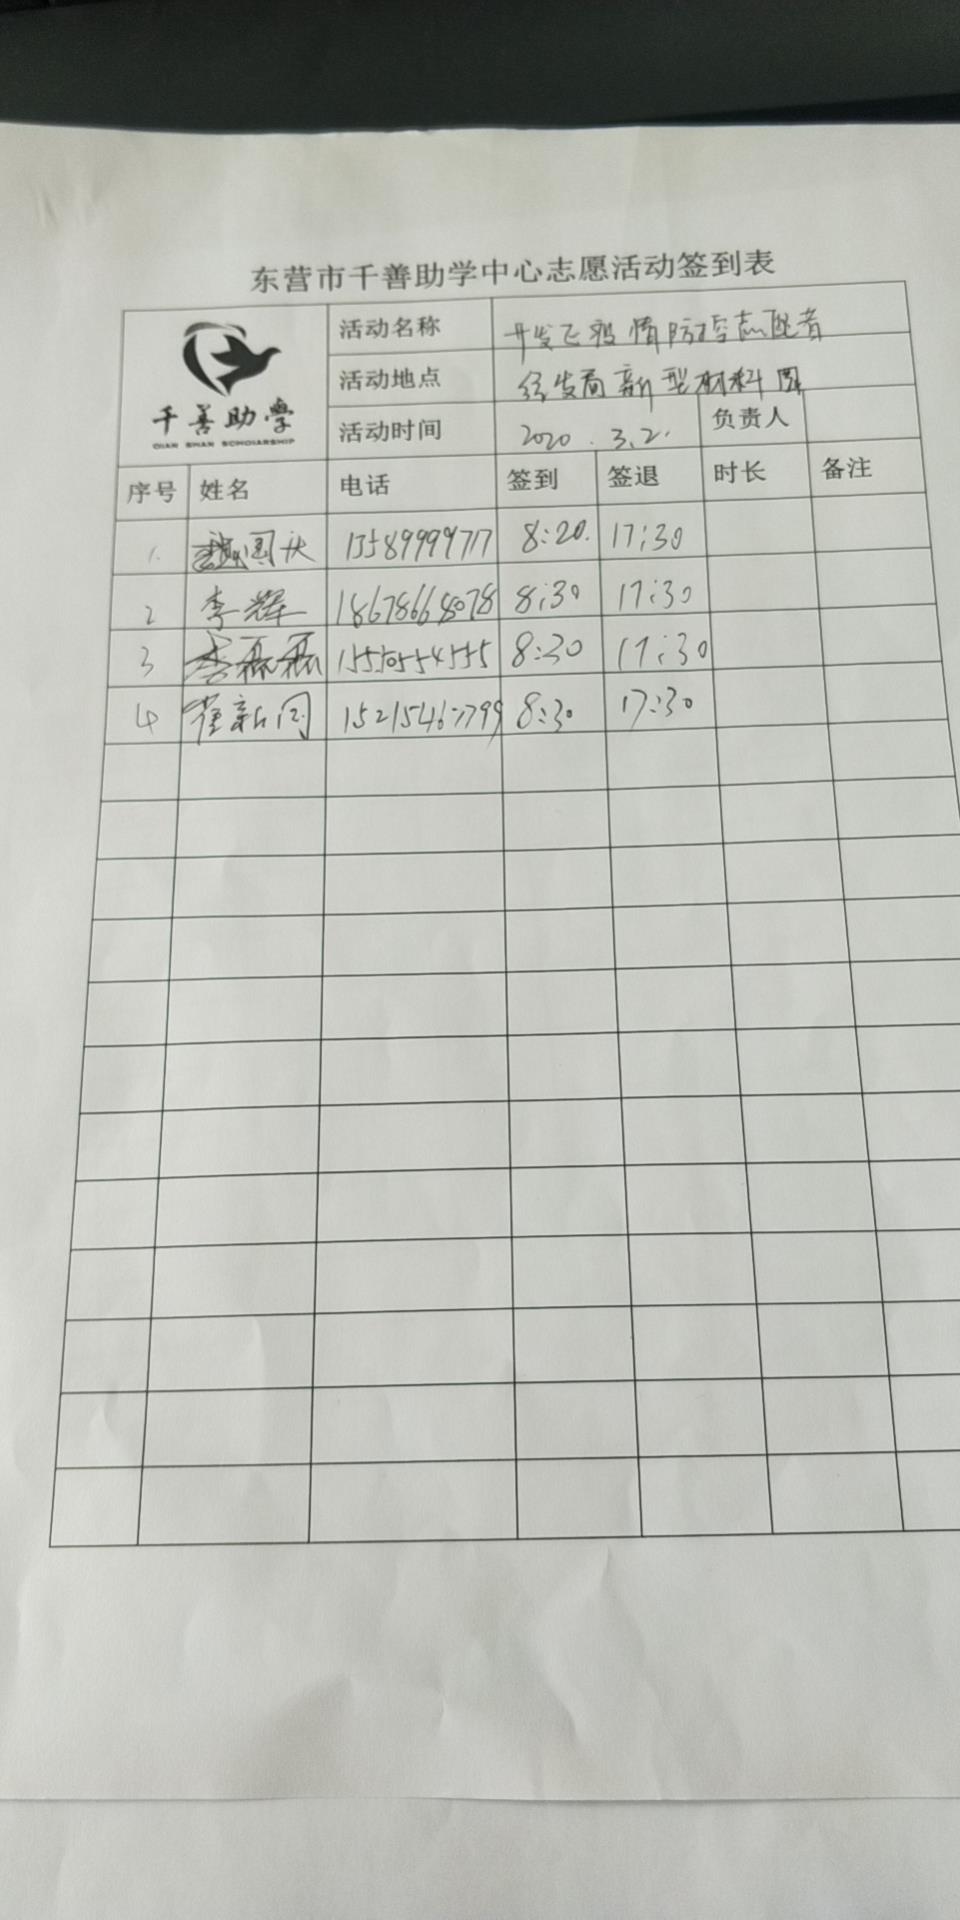 东营市千善助学中心志愿活动签到表
千善助学
QIAN SHAN SCHOLARSHIP
活动名称 开发区疫情防控志愿者
活动地点 经发局新型材料园
活动时间 2020.3.2. 负责人
序号 姓名 电话 签到 签退 时长 备注
1. 国庆 13589999717 8:20. 17:30
2 李辉 18678668078 8:30 17:30
3 李磊磊 8:30 17:30
4 崔新同 8:30 17:30